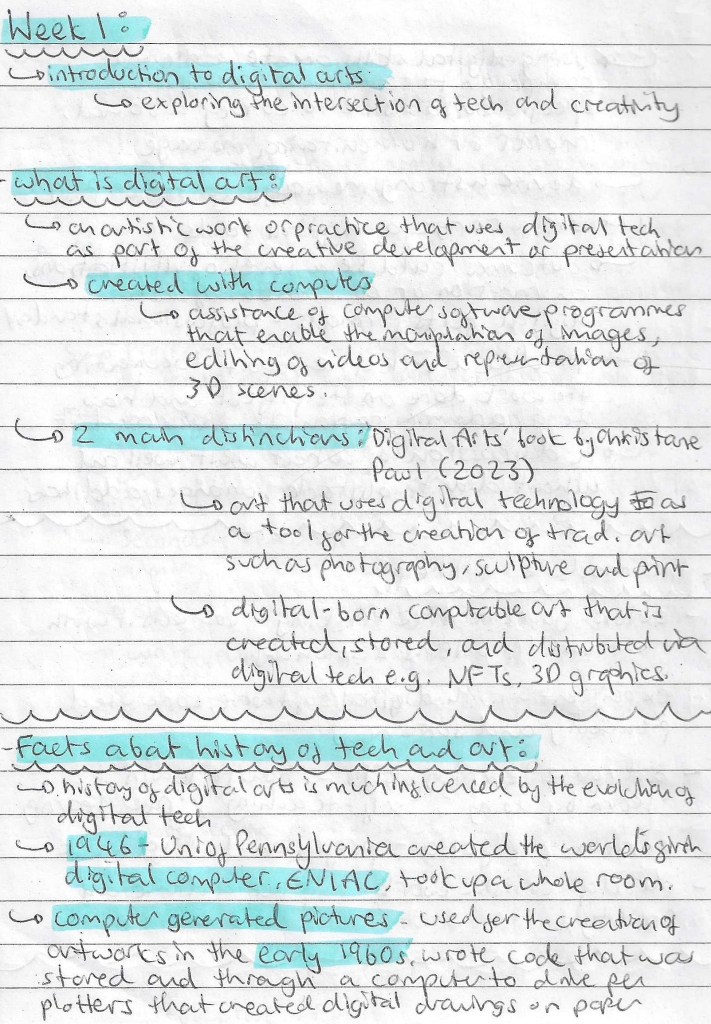 Week 1:
introduction to digital arts
exploring the intersection of tech and creativity
- what is digital art:
an artistic work or practice that uses digital tech
as part of the creative development or presentation
created with computers
assistance of computer software programmes
that enable the manipulation of images,
editing of videos and representation of
3D scenes.
2 main distinctions: 'Digital Arts' book by Christane
Paul (2023)
art that uses digital technology as
a tool for the creation of trad. art
such as photography, sculpture and print
digital-born computable art that is
created, stored, and distributed via
digital tech e.g. NFTs, 3D graphics.
- Facts about history of tech and art:
history of digital arts is much influenced by the evolution of
digital tech
1946 - Uni of Pennsylvania created the world's
digital computer, ENIAC, took up a whole room.
computer generated pictures - used for the creation of
artworks in the early 1960s, wrote code that was
stored and through a computer to drive pen
plotters that created digital drawings on paper